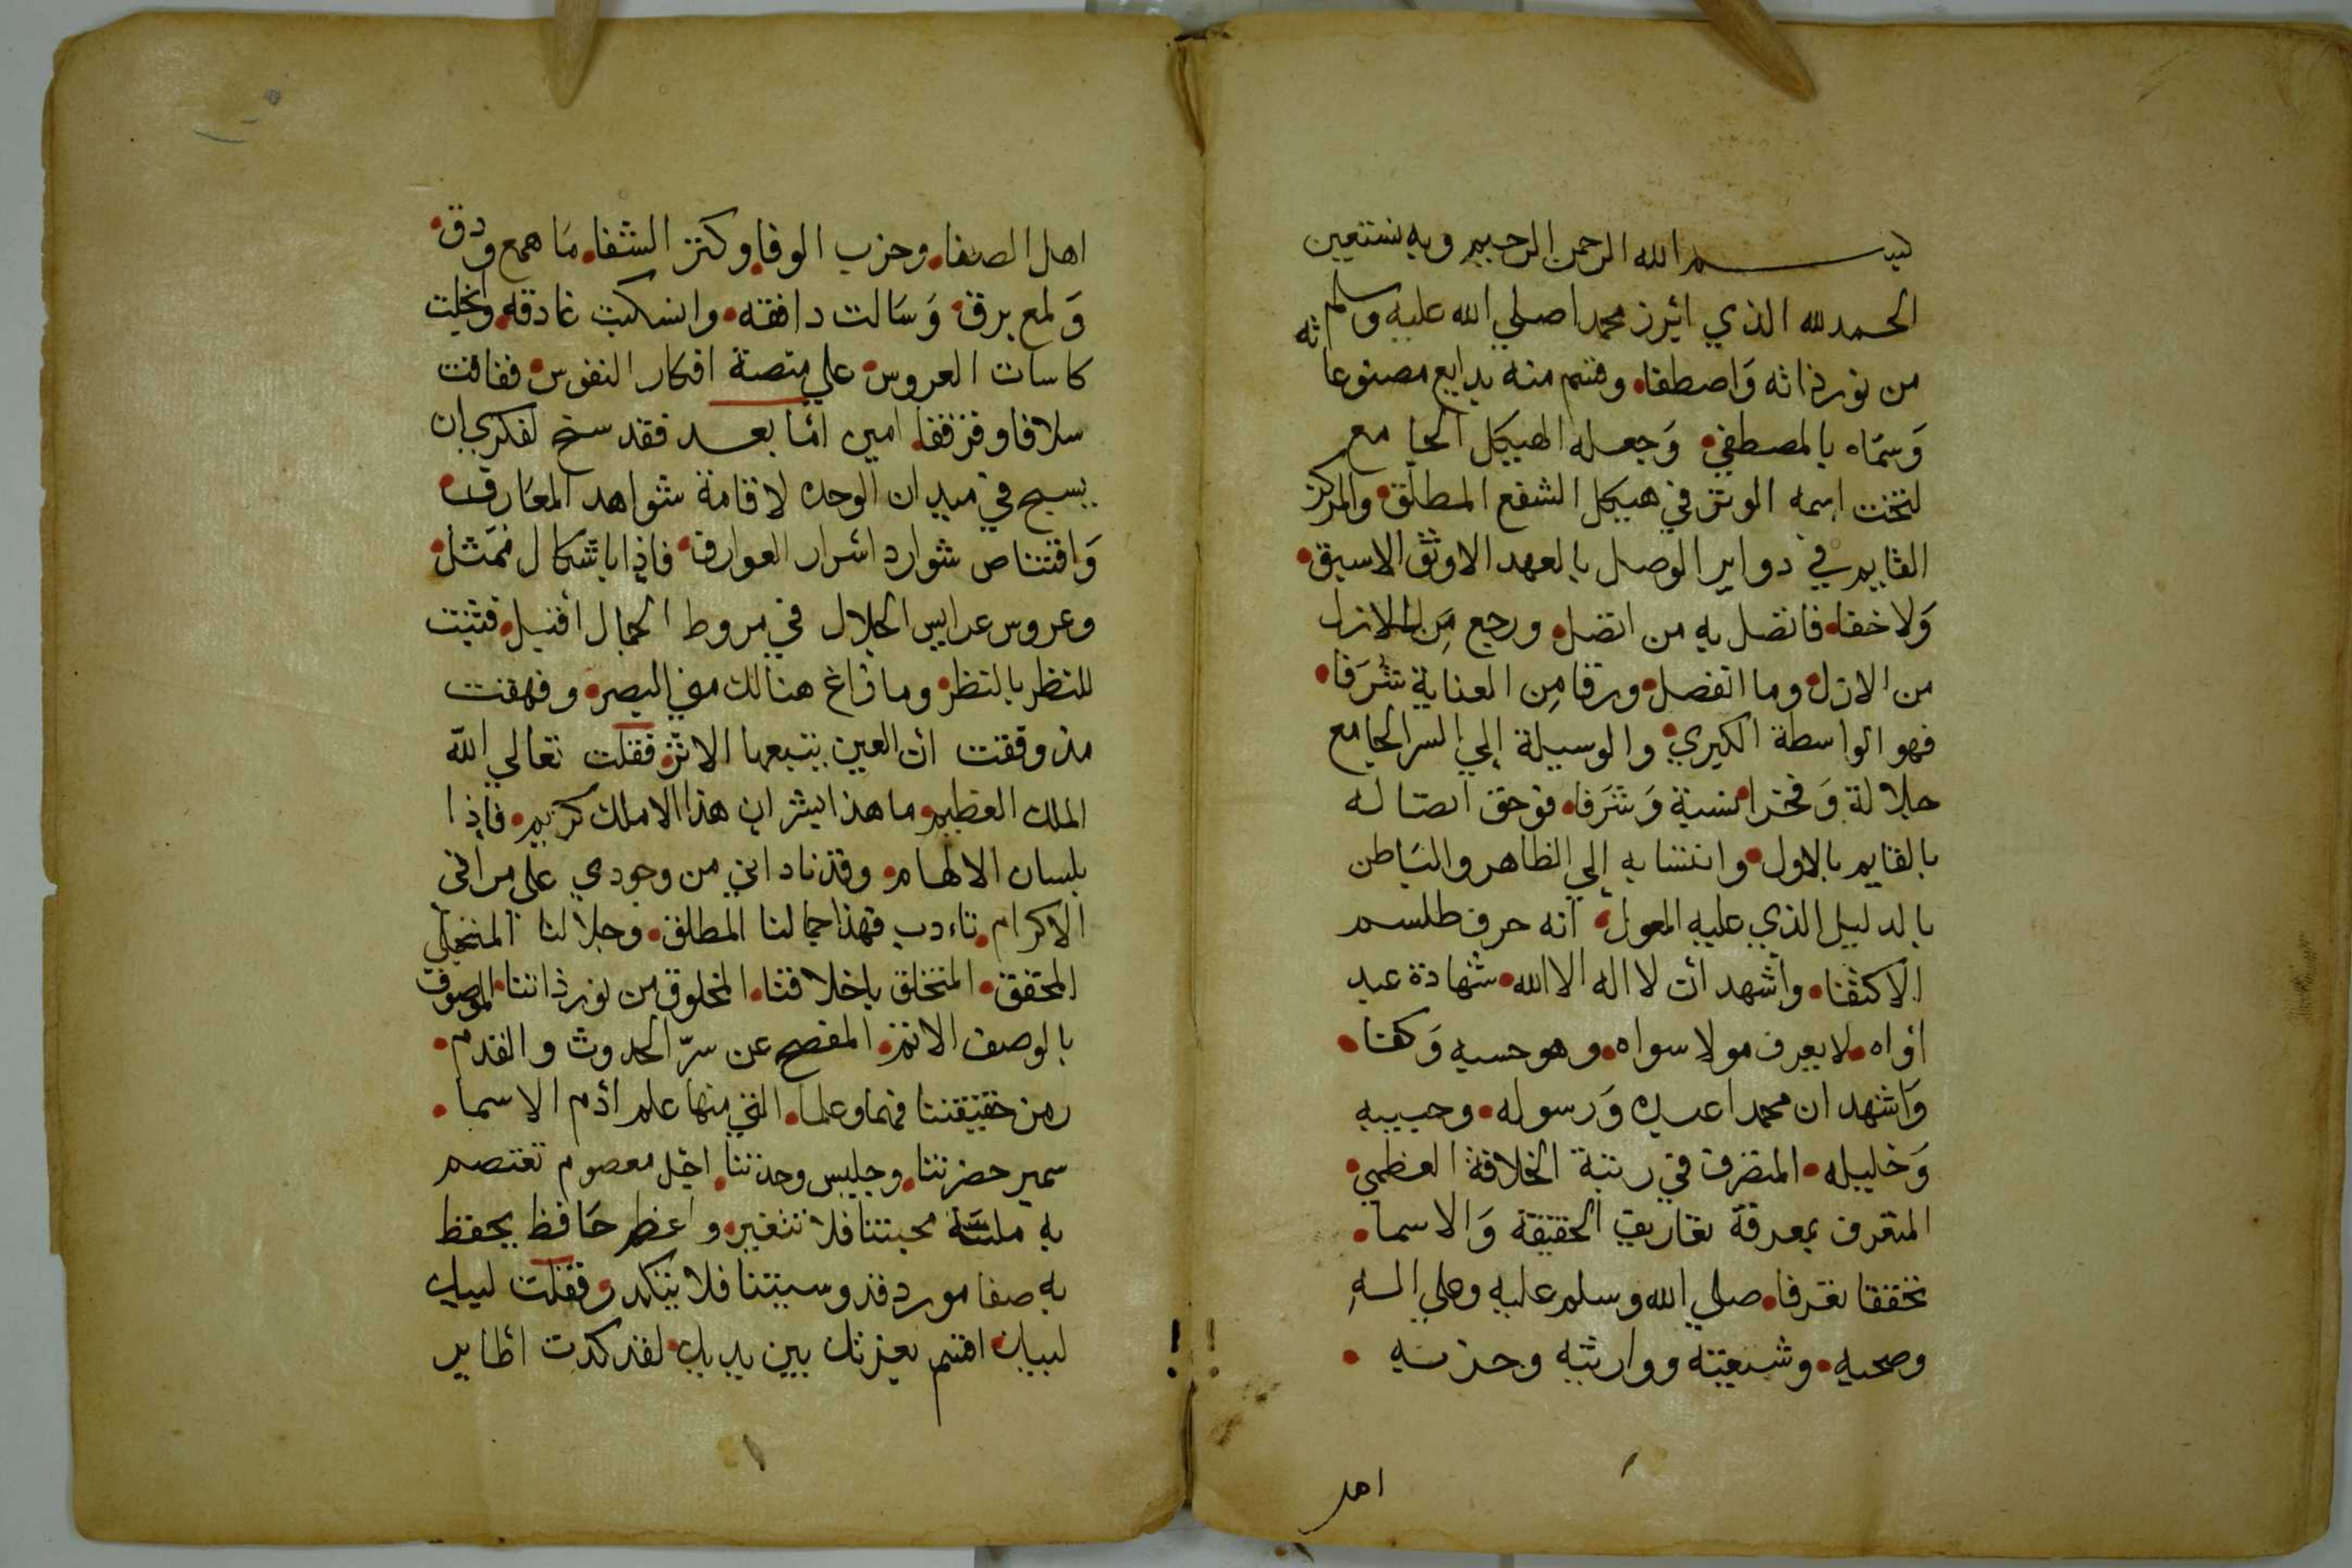 بسم الله الرحمن الرحيم وبه نستعين
الحمد لله الذي ابرز محمدا صلي الله عليه وسلم
من نور ذاته وَاصطفا• وقسم منه بدايع مصنوعاته
وَسمَّاه بالمصطفي• وَجعله الهيكل الجامع
لتخت اسمه الوتر في هيكل الشفع المطلق• والمركز
القايم في دواير الوصل بالعهد الاوثق الاسبق•
وَلا خفا• فاتصل به من اتصل• ورجع مِن الازل
من الازل• وما انفصل• ورقا مِن العناية شَرَفا•
فهو الواسطة الكبري• والوسيلة إلي السر الجامع
جلالة وَفخرا نسبة وَشَرَفا• فوحق اتصاله
بالقايم بالاول• وانتسابه إلي الظاهر والبَاطن
بالدليل الذي عليه المعول• انه حرف طلسم
الاكتفا• واشهد ان لا اله الا الله• شهادة عبد
اواه• لا يعرف مولا سواه• وهو حسبه وَكفا•
وَاشهد ان محمدا عبده وَرسوله• وحبيبه
وَخليله• المتصرف في رتبة الخلافة العظمي•
المتعرف بمعرفة تعاريف الحقيقة وَالاسما•
تحققا تعرفا• صلي الله وسلم عليه وعلي الهِ
وصحبه• وشيعته ووارثيه وحزبه •
اهل
اهل الصفا• وحزب الوفا• وكنز الشفا• مَا همع ودق•
وَلمع برق• وَسَالت دافقه• وانسكبت غادقه• وانجليت
كاسات العروس• علي منصة افكار النفوس• ففاقت
سلافا وقرقفا• امين امَّا بعد فقد سنح لفكري ان
يسيح في ميدان الوحده لاقامة شواهد المعَارف•
وَاقتناص شوارد اسرار العوارف• فاذا باشكال تمَثل•
وعروس عرايس الجلال في مروط الجمال اقبل• فتثبت
للنظر بالنظر• وما زاغ هنالك مني البصر• وفهمت
مذ وقفت ان العين يتبعها الاثر• فقلت تعالي اللّه
الملك العظيم• ما هذا بشر ان هذا الا ملك كريم• فاذا
بلسان الالهام• وقد ناداني من وجودي علي مراقي
الاكرام• تاءدب فهذا جمالنا المطلق• وجلالنا المتجلي
المحقق• المتخلق باخلاقنا• المخلوق من نور ذاتنا• الموصوف
بالوصف الاتم• المفصح عن سرّ الحدوث والقدم•
رمز حقيقتنا فهما وعلما• التي منها علم ادم الاسما •
سمير حضرتنا• وجليس وحدتنا• اجل معصوم تعتصم
به ملة محبتنا فلا تتغير• واعظم حَافظ يحفظ
به صفا مورد قدوسيتنا فلا يتكدر• فقلت لبيك
لبيك• اقسم بعزتك بين يديك• لقد كدت اطاير